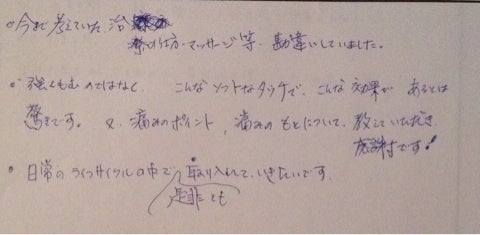 ○今まで考えていた、治
療の仕方・マッサージ等、勘違いしていました。
○強くもむのではなく、こんなソフトなタッチで、こんな効果があるとは
驚きです。又、痛みのポイント、痛みのもとについて、教えていただき
感謝です!
○日常のライフサイクルの中で、取り入れていきたいです。
是非とも